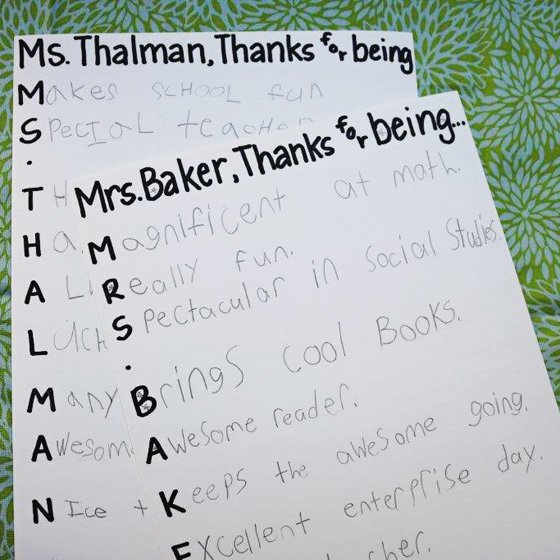 Ms. Thalman, Thanks for being
Makes SCHOOL fun
SpecIaL teacher
.
T H
Ha
A L
LUCH
Many
Awesom
NIce +
Mrs. Baker, Thanks for being...
Magnificent at math.
Really fun.
Spectacular in Social Studies.
.
Brings cool Books.
Awesome reader.
Keeps the awesome going.
EXcellent enterprise day.